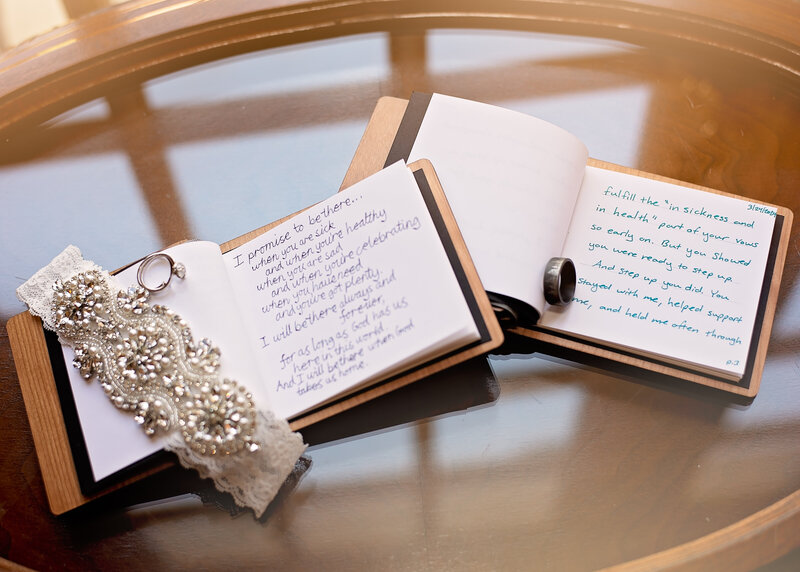 I promise to be there...
when you are sick
and when you're healthy
when you are sad
and when you're celebrating
when you have need
and you've got plenty.
I will be there always and
forever,
for as long as God has us
here in this world.
And I will be there when God
takes us home.
fulfill the "in sickness and
in health" part of your vows
so early on. But you showed
you were ready to step up.
And step up you did. You
stayed with me, helped support
me, and held me often through
p.3